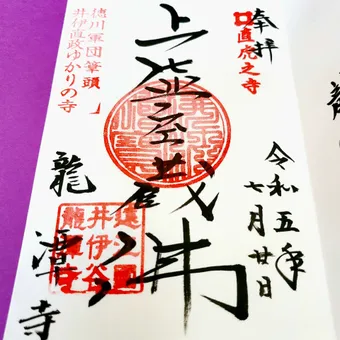 奉拝
直虎之寺
令和五年
七月廿日
虚空蔵佛
徳川軍団筆頭
井伊直政ゆかりの寺
龍潭寺
井伊谷
龍潭寺